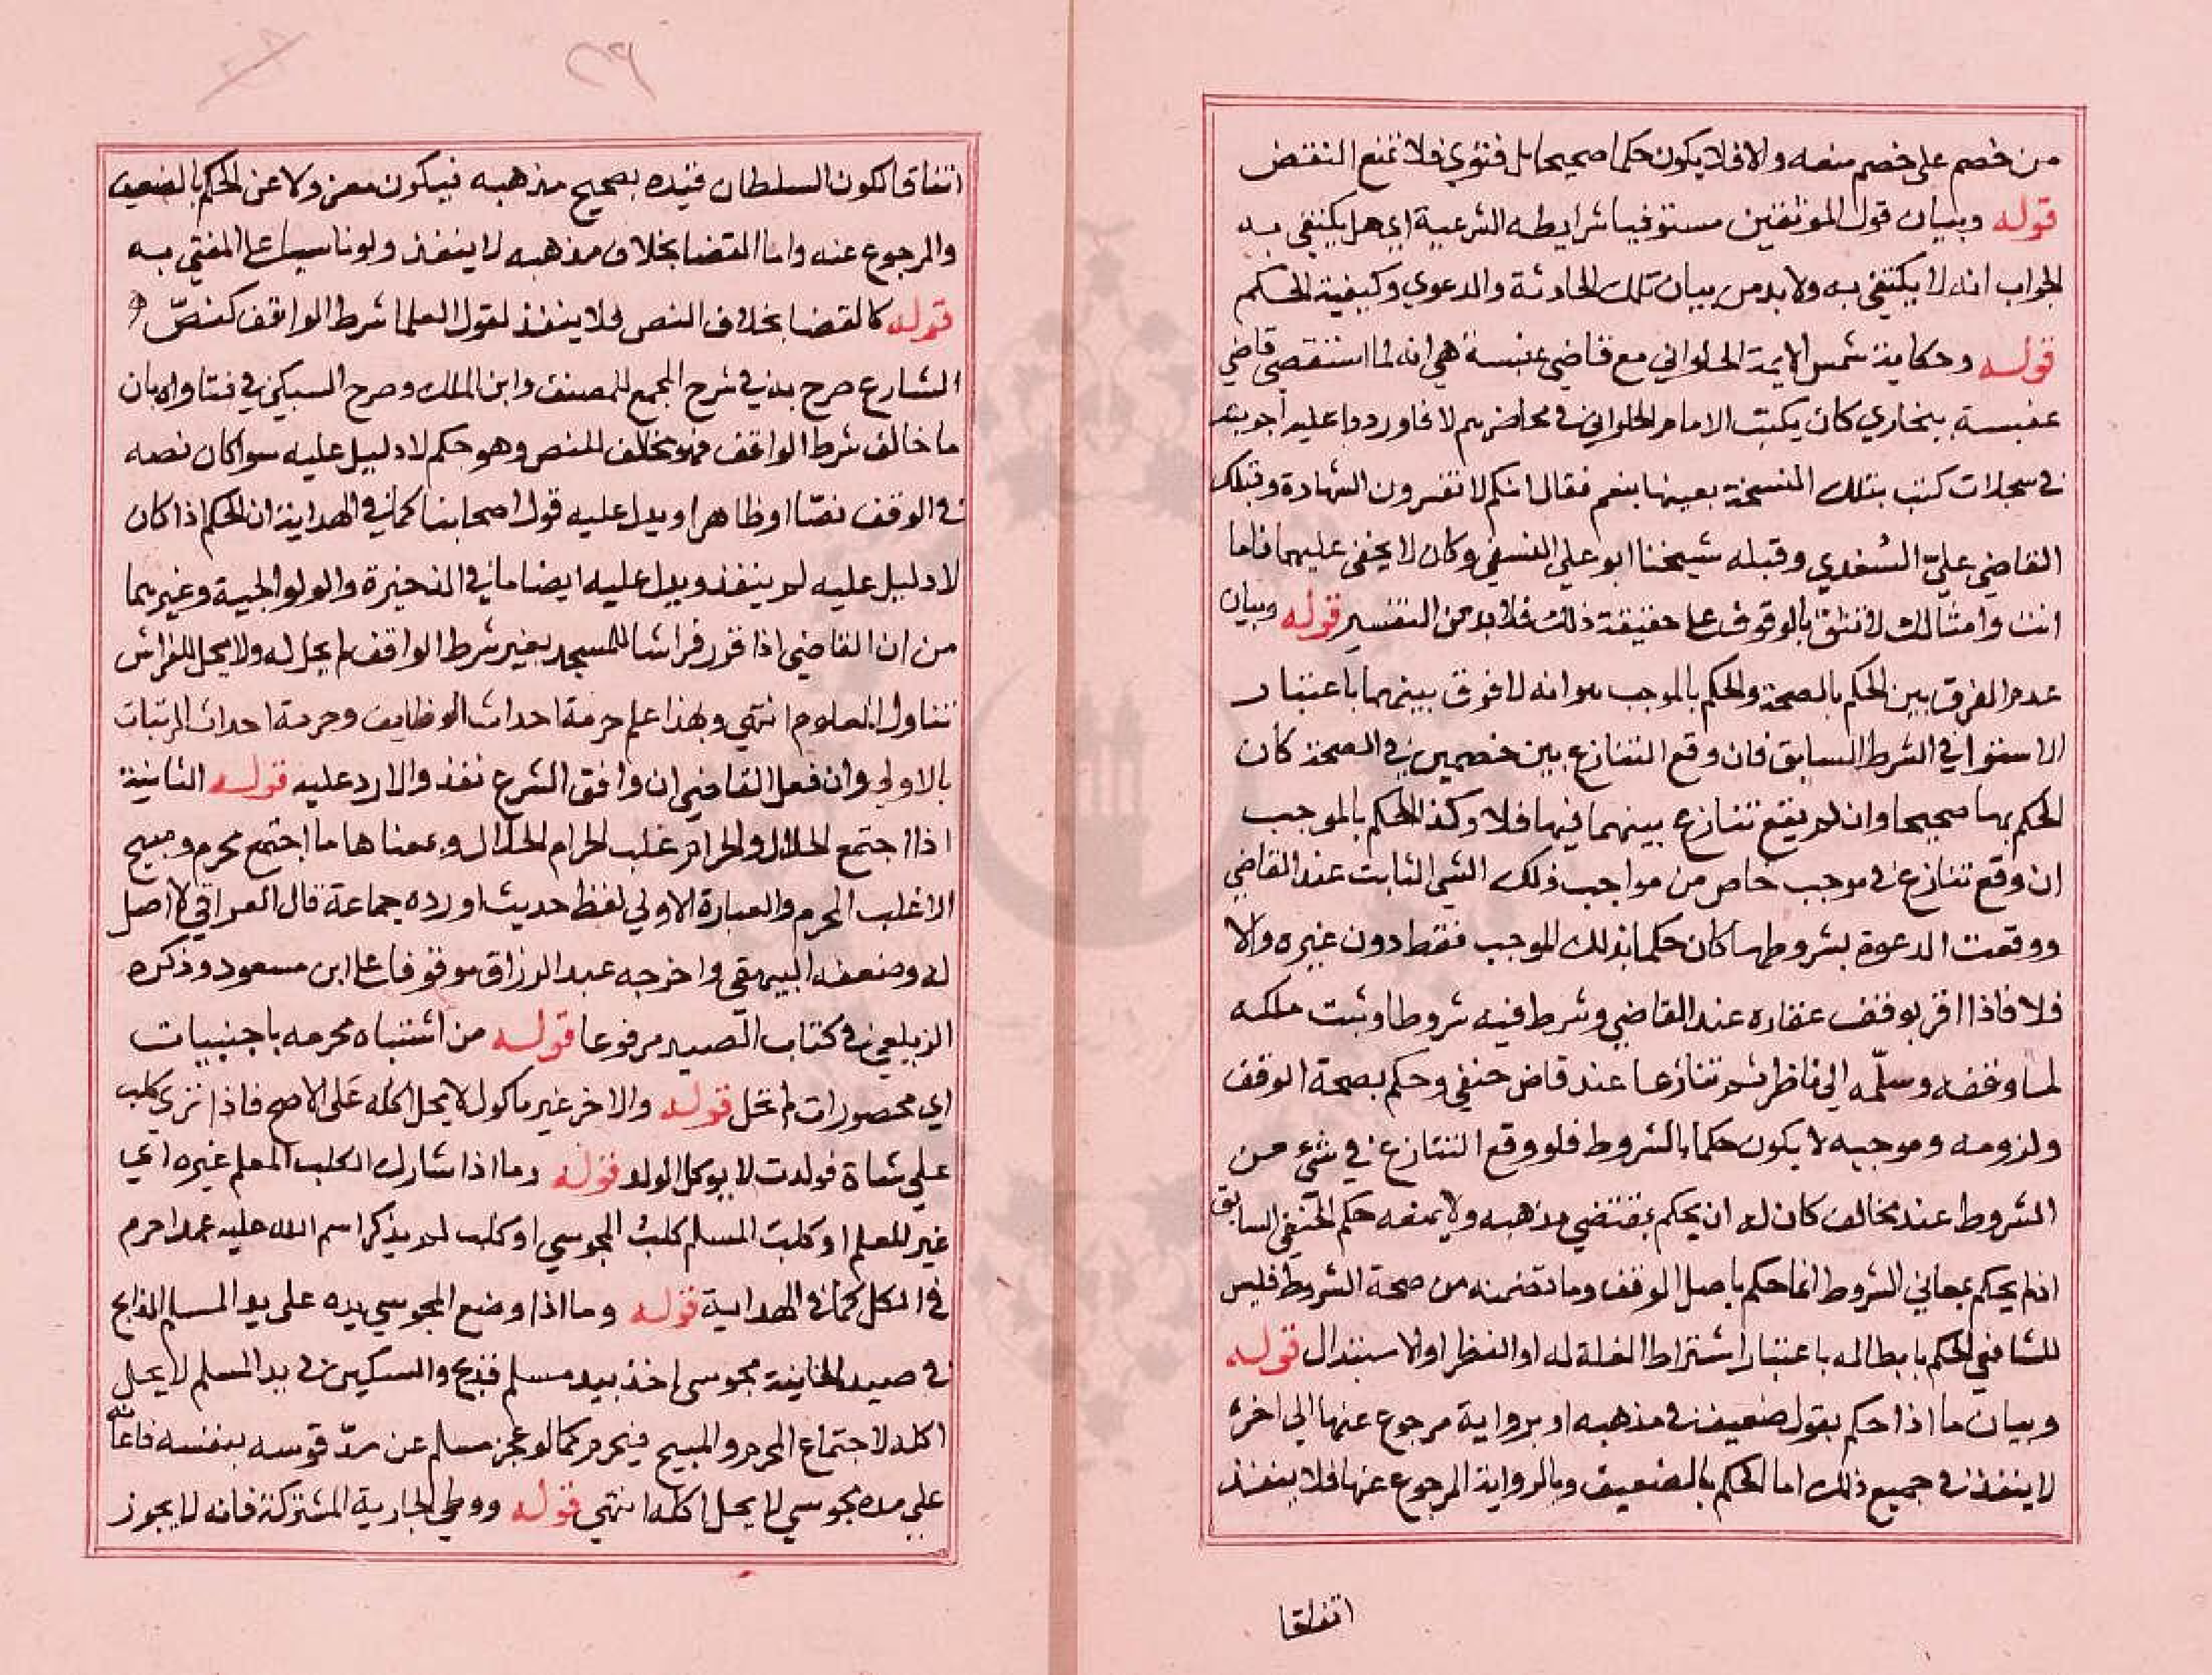 من خصم على خصم منعه والا فلا يكون حكما صحيحا بل فتوي فلا تمنع النقض
قوله وبيان قول الموثقين مستوفيا شرايطه الشرعية اي هل يكتفي به
الجواب انه لا يكتفي به ولا بد من بيان تلك الحادثة والدعوي وكيفية الحكم
قوله وحكاية شمس الايمة الحلواني مع قاضي عنبسة هي انه لما استقصي قاضي
عنبسة ببخاري كان يكتب الامام الحلواني في محاضرهم لا فاوردوا عليه اجوبته
في سجلات كتب بتلك النسخة بعينها بنعم فقال انكم لا تفسرون الشهادة وقبلك
القاضي عليّ السغدي وقبله شيخنا ابو علي النسفي وكان لا يخفي عليهما فاما
انت وامثالك لا نثق بالوقوف علي حقيقة ذلك فلا بد من التفسير قوله وبيان
عدم الفرق بين الحكم بالصحة والحكم بالموجب هو انه لا فرق بينهما باعتبار
الاستوا في الشرط السابق فان وقع التنازع بين خصمين في الصحة كان
الحكم بها صحيحا وان لم يقع تنازع بينهما فيها فلا وكذا الحكم بالموجب
ان وقع تنازع في موجب خاص من مواجب ذلك الشي الثابت عند القاضي
ووقعت الدعوة بشروطها كان حكما بذلك الموجب فقط دون غيره والا
فلا فاذا اقر بوقف عقاره عند القاضي وشرط فيه شروطا وثبت ملكه
لما وقفه وسلّمه الي ناظر ثم تنازعا عند قاض حنفي وحكم بصحة الوقف
ولزومه وموجبه لا يكون حكما بالشروط فلو وقع التنازع في شيء من
الشروط عند مخالف كان له ان يحكم بمقتضي مذهبه ولا يمنعه حكم الحنفي السابق
اذ لم يحكم بمعاني الشروط انما حكم باصل الوقف وما تضمنه من صحة الشروط فليس
للشافعي الحكم بابطاله باعتبار اشتراط الغلة له او النظر او الاستبدال قوله
وبيان ما اذا حكم بقول ضعيف في مذهبه او برواية مرجوع عنها الي اخره
لا ينفذ في جميع ذلك اما الحكم بالضعيف وبالرواية المرجوع عنها فلا ينفذ
اتفاقا
٢٩
اتفاقا لكون السلطان قيده بصحيح مذهبه فيكون معزولا عن الحكم بالضعيف
والمرجوع عنه واما القضا بخلاف مذهبه لا ينفذ ولو ناسيا علي المفتي به
قوله كالقضا بخلاف النص فلا ينفذ لقول العلما شرط الواقف كنصّ
الشارع صرح به في شرح المجمع للمصنف وابن الملك وصرح السبكي في فتاواه بان
ما خالف شرط الواقف فهو مخالف للنص وهو حكم لا دليل عليه سوا كان نصه
في الوقف نصّا او ظاهرا ويدل عليه قول اصحابنا كما في الهداية ان الحكم اذا كان
لا دليل عليه لم ينفذ ويدل عليه ايضا ما في الذخيرة والولوالجية وغيرهما
من ان القاضي اذا قرر فراشا للمسجد بغير شرط الواقف لم يحل له ولا يحل للفراش
تناول المعلوم انتهي وبهذا علم حرمة احداث الوظايف وحرمة احداث المرتبات
بالاولي وان فعل القاضي ان وافق الشرع نفذ والا رد عليه قوله الثانية
اذا اجتمع الحلال والحرام غلب الحرام الحلال ومعناها ما اجتمع محرم ومبيح
الا غلب المحرم والعبارة الاولي لفظ حديث اورده جماعة قال العراقي لا اصل
له وضعفه البيهقي واخرجه عبد الرزاق موقوفا علي ابن مسعود وذكره
الزيلعي في كتاب الصيد مرفوعا قوله من اشتباه محرمه باجنبيات
اي محصورات لم تحل قوله والاخر غير ماكول لا يحل اكله عَلي الاصح فاذا نزي كلب
علي شاة فولدت لا يوكل الولد قوله وما اذا شارك الكلب المعلم غيره اي
غير المعلم او كلبَ المسلم كلبُ المجوسي او كلب لم يذكر اسم الله عليه عمدا حرم
في الكل كما في الهداية قوله وما اذا وضع المجوسي يده على يد المسلم الذابح
في صيد الخانية مجوسي اخذ بيد مسلم فذبح والسكين في يد المسلم لا يحل
اكله لاجتماع المحرم والمبيح فيحرم كما لو عجز مسلم عن مدّ قوسه بنفسه فاعانه
علي مده مجوسي لا يحل اكله انتهي قوله ووطي الجارية المشتركة فانه لا يجوز